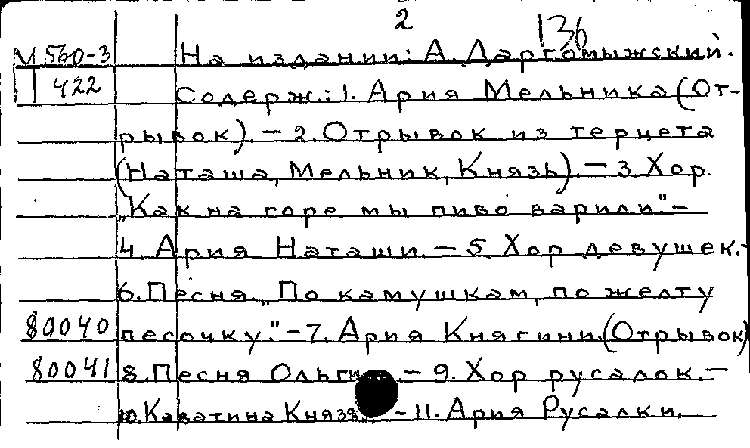 2
136
М.560-3 На издании: А. Даргомыжский.
422 Содерж.: 1. Ария Мельника (От-
рывок). – 2. Отрывок из терцета
(Наташа, Мельник, Князь). – 3. Хор
„Как на горе мы пиво варили". –
4. Ария Наташи. – 5. Хор девушек. –
6. Песня „По камушкам, по желту
80040 песочку." – 7. Ария Княгини. (Отрывок)
80041 8. Песня Ольги. – 9. Хор русалок. –
10. Каватина Князя. – 11. Ария Русалки.